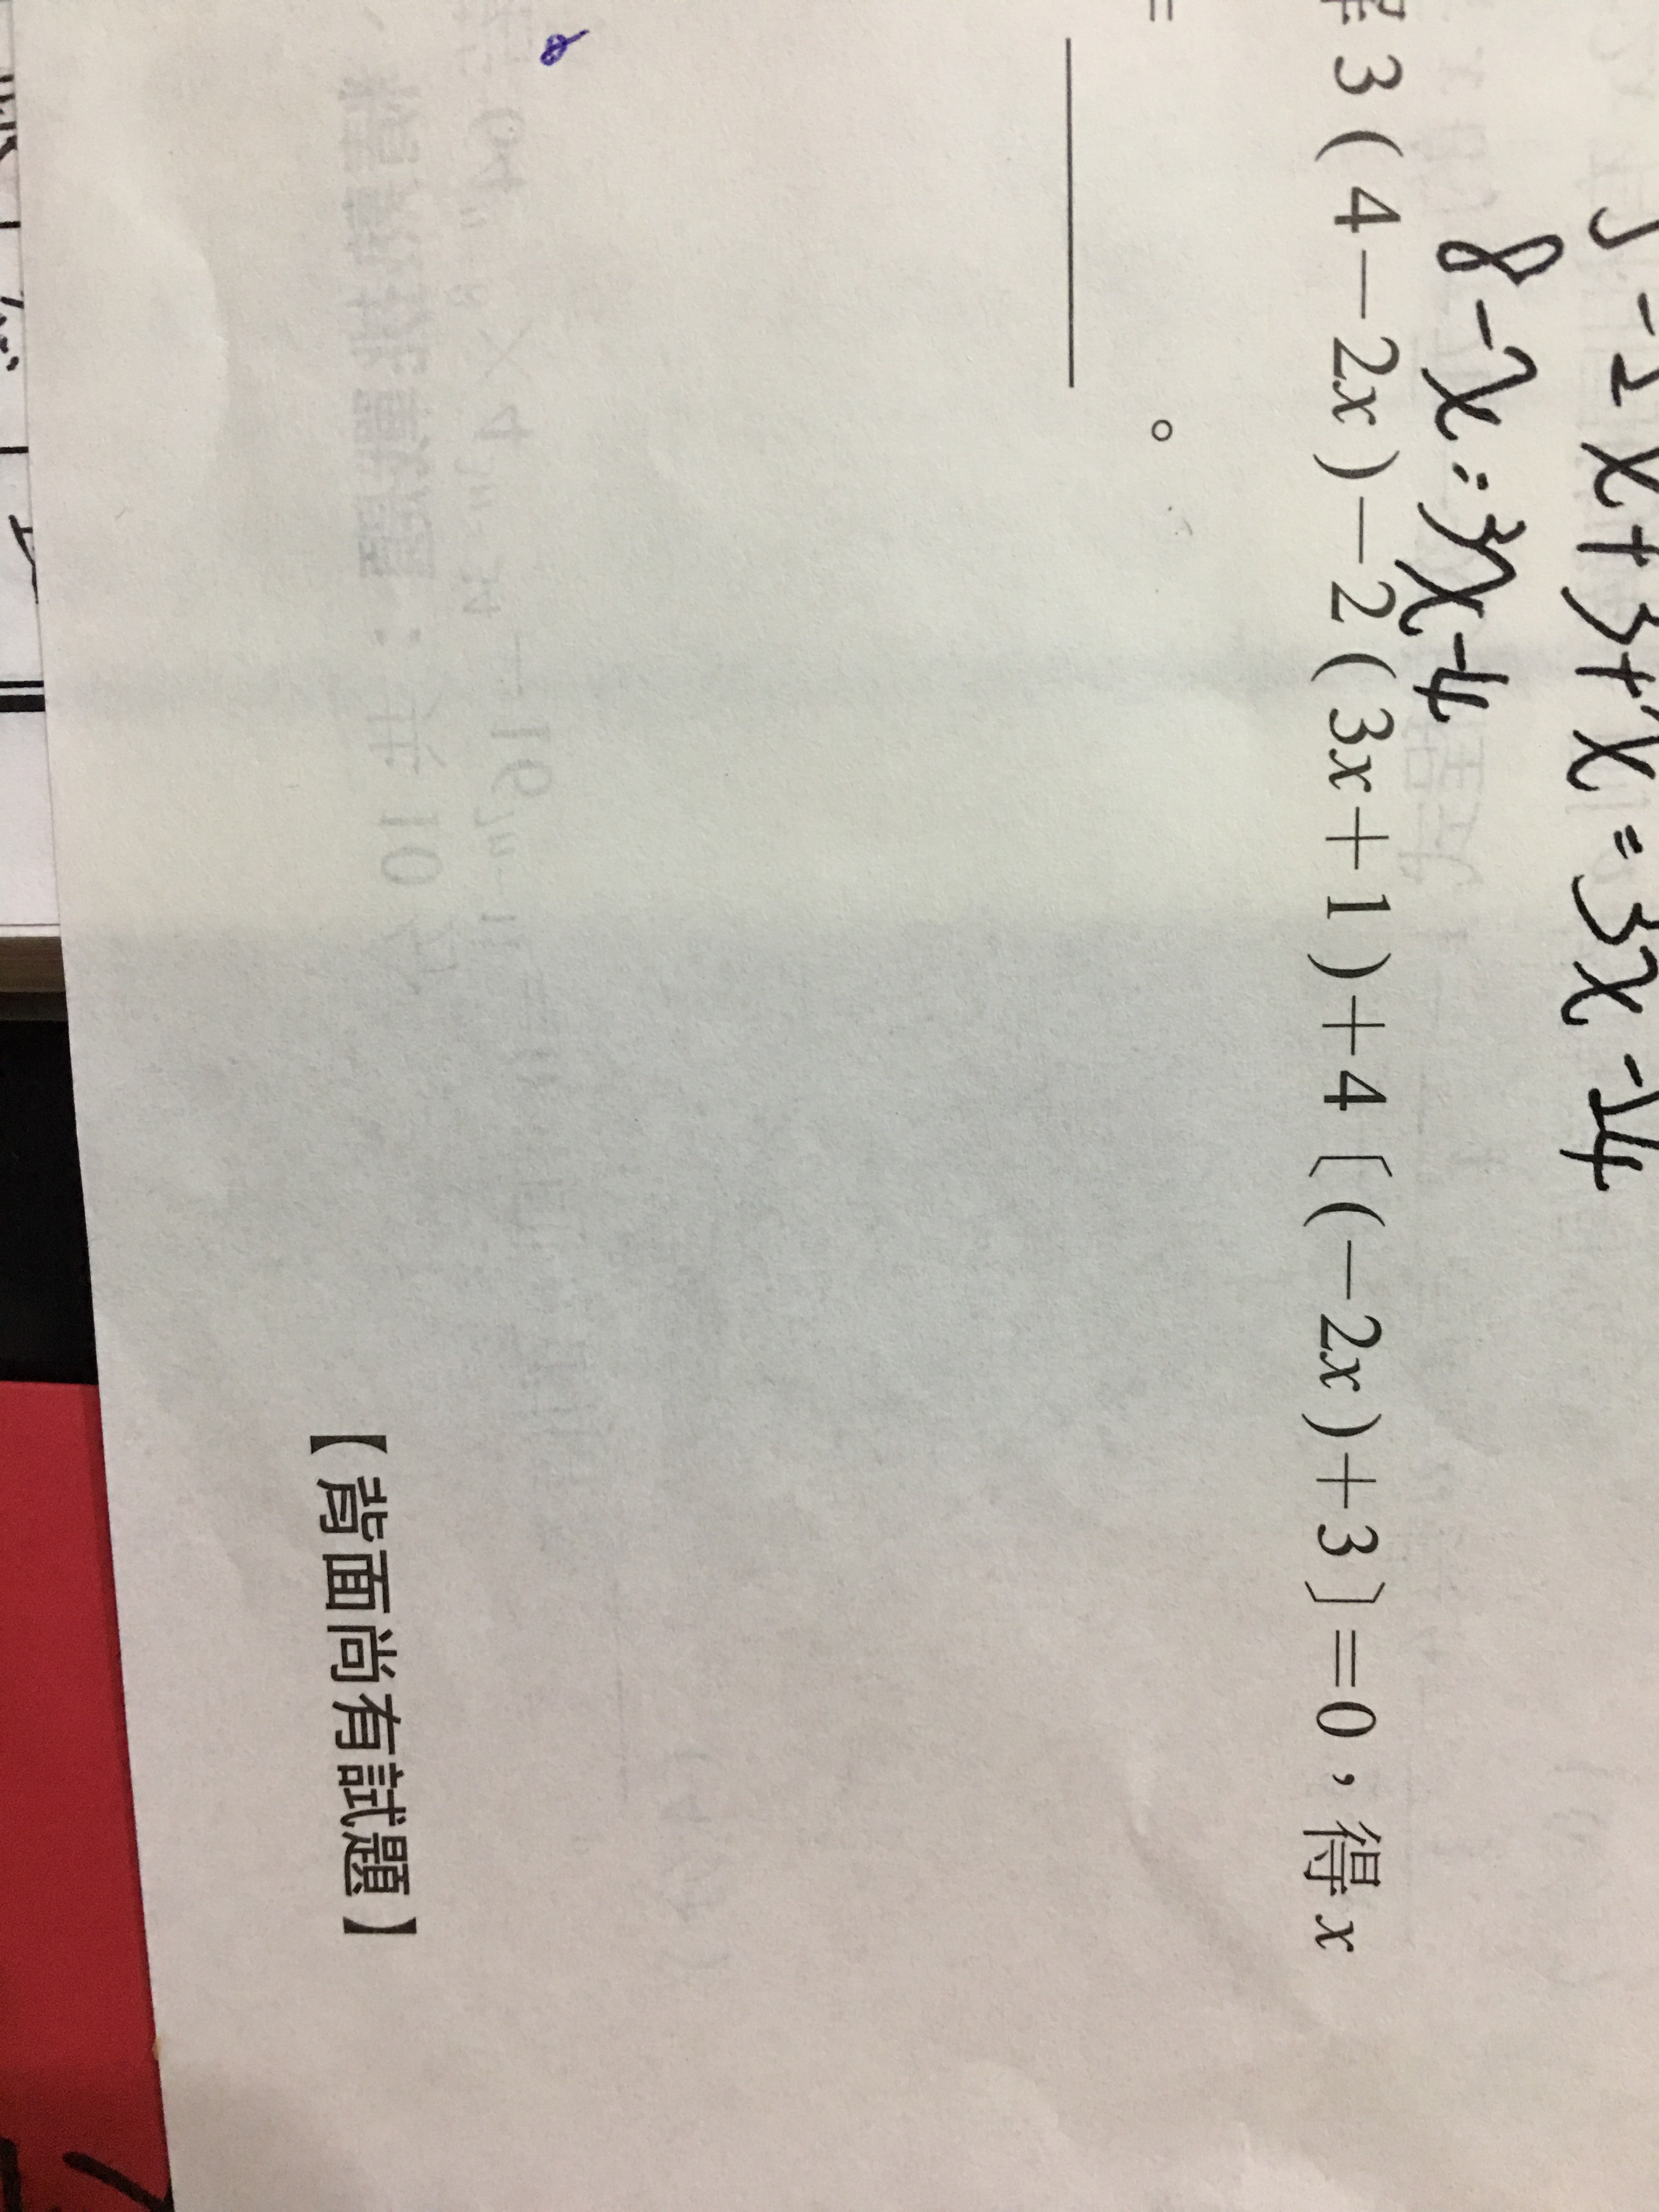 -2x+3+x=3x-14
8-x=3x-4
解3(4-2x)-2(3x+1)+4〔(-2x)+3〕=0,得x
=＿＿＿。
【背面尚有試題】